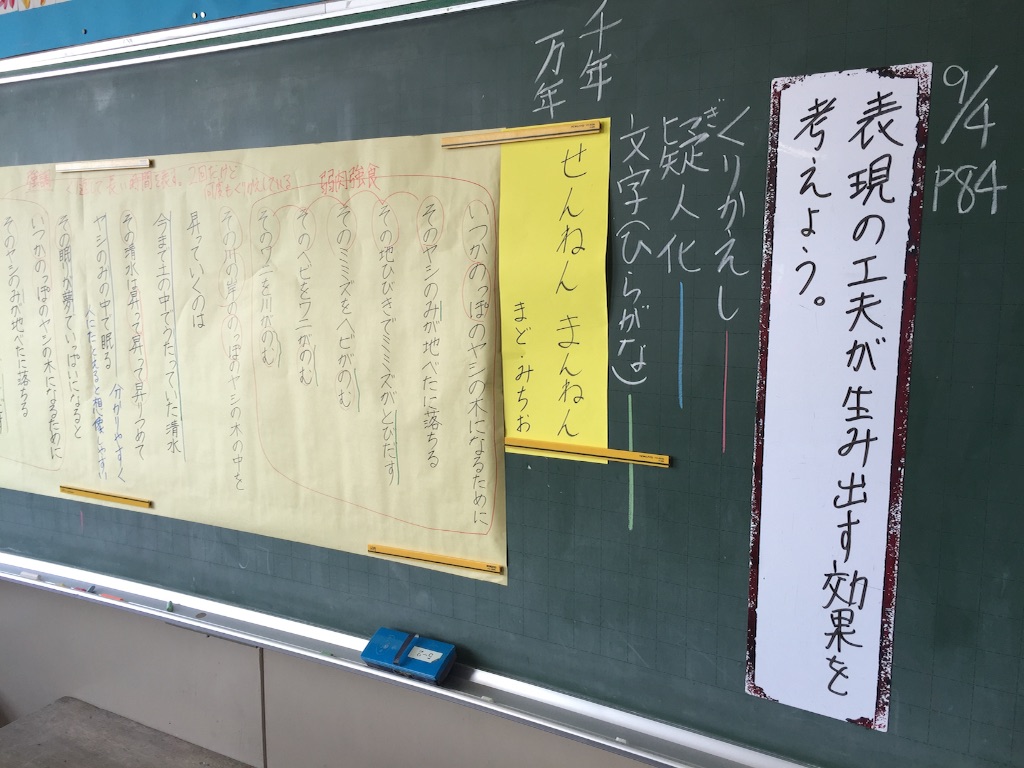 9/4
P84
表現の工夫が生み出す効果を
考えよう。
くりかえし
ぎ
擬人化
文字(ひらがな)
千年
万年
せんねん まんねん
まど・みちお
弱肉強食
いつかのっぽのヤシの木になるために
そのヤシのみが地べたに落ちる
その地ひびきでミミズがとびだす
そのミミズをヘビがのむ
そのヘビをワニがのむ
そのワニを川がのむ
その川の岸ののっぽのヤシの木の中を
昇っていくのは
今まで土の中でうたっていた清水
その清水は昇って昇って昇りつめて
ヤシのみの中で眠る
分かりやすく
その眠りが夢でいっぱいになると
いつかのっぽのヤシの木になるために
そのヤシのみが地べたに落ちる
3-2